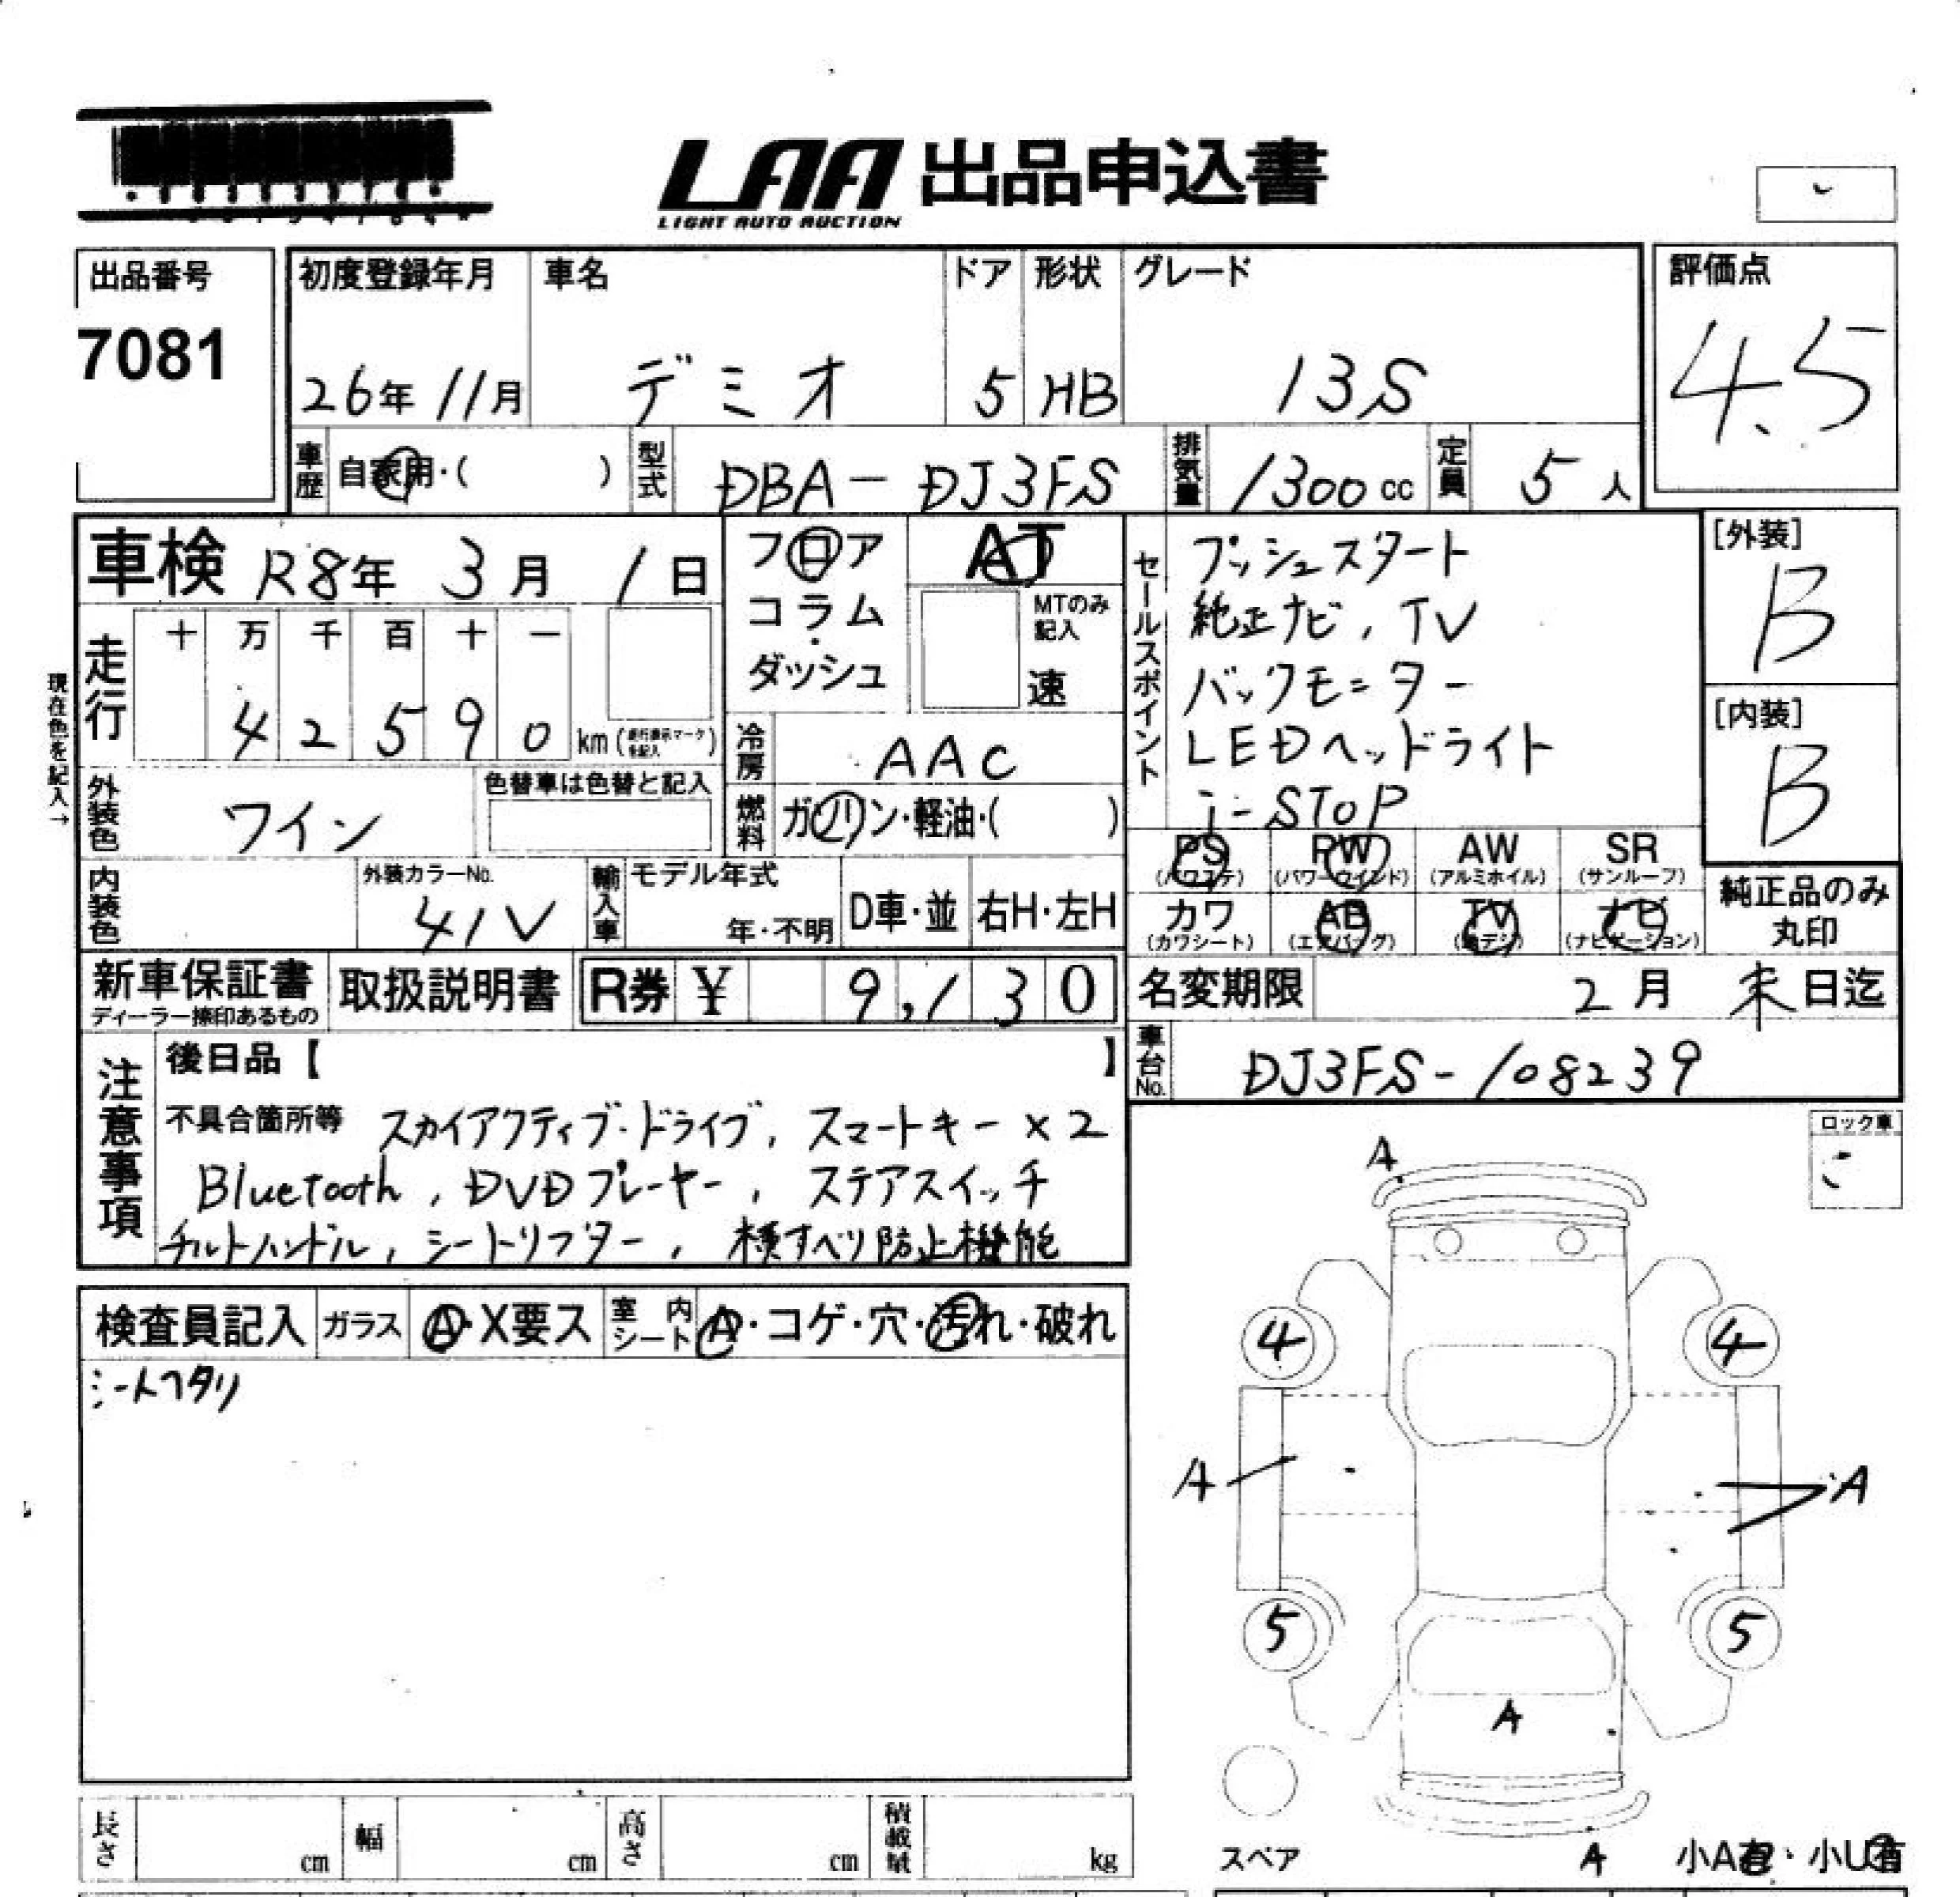 LAA 出品申込書
LIGHT AUTO AUCTION
出品番号
7081
初度登録年月 車名 ドア 形状 グレード
26年 11月 デミオ 5 HB 13S
評価点
4.5
車歴 自家用・( ) 型式 DBA-DJ3FS 排気量 1300cc 定員 5人
車検 R8年 3月 1日
フロア
コラム
・
ダッシュ
AT
MTのみ
記入
速
走行 十 万 千 百 十 一
4 2 5 9 0 km
現在色を記入→
外装色 ワイン
色替車は色替と記入
内装色
外装カラーNo.
41V
冷房 AAC
燃料 ガソリン・軽油・( )
輸入車 モデル年式
年・不明 D車・並 右H・左H
セールスポイント
プッシュスタート
純正ナビ, TV
バックモニター
LEDヘッドライト
i-STOP
[外装]
B
[内装]
B
PS PW AW SR
(パワステ) (パワーウインド) (アルミホイル) (サンルーフ)
カワ AB TV ナビ
(カワシート) (エアバッグ) (地デジ) (ナビゲーション)
純正品のみ
丸印
新車保証書
ディーラー捺印あるもの
取扱説明書 R券 ¥ 9,130
名変期限 2月 末日迄
車台No. DJ3FS-108239
注意事項
後日品【 】
不具合箇所等 スカイアクティブ・ドライブ, スマートキー×2
Bluetooth, DVDプレーヤー, ステアスイッチ
チルトハンドル, シートリフター, 横すべり防止機能
ロック車
検査員記入 ガラス A・X要ス 室内シート A・コゲ・穴・汚れ・破れ
シートヘタリ
A
4 4
A A
5 5
A
スペア A 小A有・小U有
長さ cm 幅 cm 高さ cm 積載量 kg